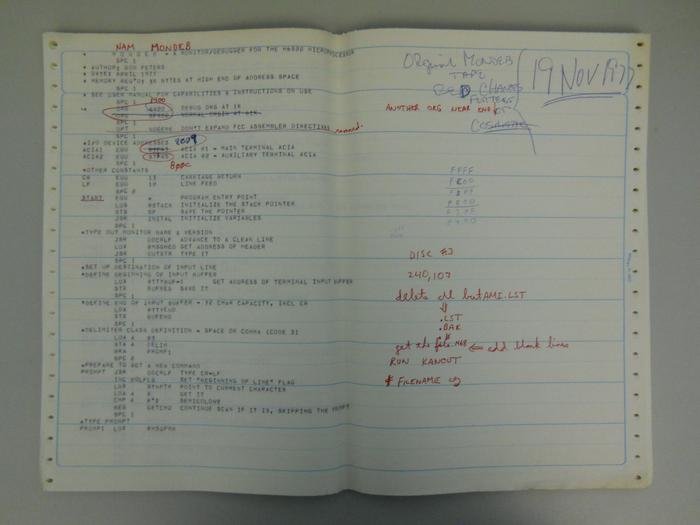 NAM MONDEB
* MONDEB - A MONITOR/DEBUGGER FOR THE M6800 MICROPROCESSOR
SPC 1
* AUTHOR: DON PETERS
* DATE: APRIL 1977
* MEMORY REQ'D: BYTES AT HIGH END OF ADDRESS SPACE
SPC 1
* SEE USER MANUAL FOR CAPABILITIES & INSTRUCTIONS ON USE
SPC 1
1400
ORG DEBUG ORG AT 1K
NORMAL ORIGIN AT
SPC 1
OPT NOGENE DON'T EXPAND FCC ASSEMBLER DIRECTIVES
SPC 1
*I/O DEVICE ADDRESSES 8009
ACIA1 EQU ACIA #1 - MAIN TERMINAL ACIA
ACIA2 EQU ACIA #2 - AUXILIARY TERMINAL ACIA
SPC 1
*OTHER CONSTANTS
CR EQU 13 CARRIAGE RETURN
LF EQU 10 LINE FEED
SPC 2
START EQU * PROGRAM ENTRY POINT
LDS #STACK INITIALIZE THE STACK POINTER
STS SP SAVE THE POINTER
JSR INITAL INITIALIZE VARIABLES
SPC 1
*TYPE OUT MONITOR NAME & VERSION
JSR DOCRLF ADVANCE TO A CLEAN LINE
LDX #MSGHED GET ADDRESS OF HEADER
JSR OUTSTR TYPE IT
SPC 1
*SET UP DESTINATION OF INPUT LINE
*DEFINE BEGINNING OF INPUT BUFFER
LDX #TTYBUF-1 GET ADDRESS OF TERMINAL INPUT BUFFER
STX BUFBEG SAVE IT
SPC 1
*DEFINE END OF INPUT BUFFER - 72 CHAR CAPACITY, INCL CR
LDX #TTYEND
STX BUFEND
SPC 1
*DELIMITER CLASS DEFINITION - SPACE OR COMMA (CODE 3)
LDA A #3
STA A DELIM
BRA PROMP1
SPC 1
*PREPARE TO GET A NEW COMMAND
PROMPT JSR DOCRLF TYPE CR+LF
INC BOLFLG SET "BEGINNING OF LINE" FLAG
LDX SYNPTR POINT TO CURRENT CHARACTER
LDA A X GET IT
CMP A #'; SEMICOLON?
BEQ GETCMD CONTINUE SCAN IF IT IS, SKIPPING THE PROMPT
SPC 1
*TYPE PROMPT
PROMP1 LDX #MSGPRM
Original MONDEB
TAPE
CHANGE
19 NOV 1977
ANOTHER ORG NEAR END
FFFF
DISC #3
240,107
delete all but AMI.LST
.LST
.BAK
get the file.M68 ← add blank lines
RUN KANCUT
# FILENAME